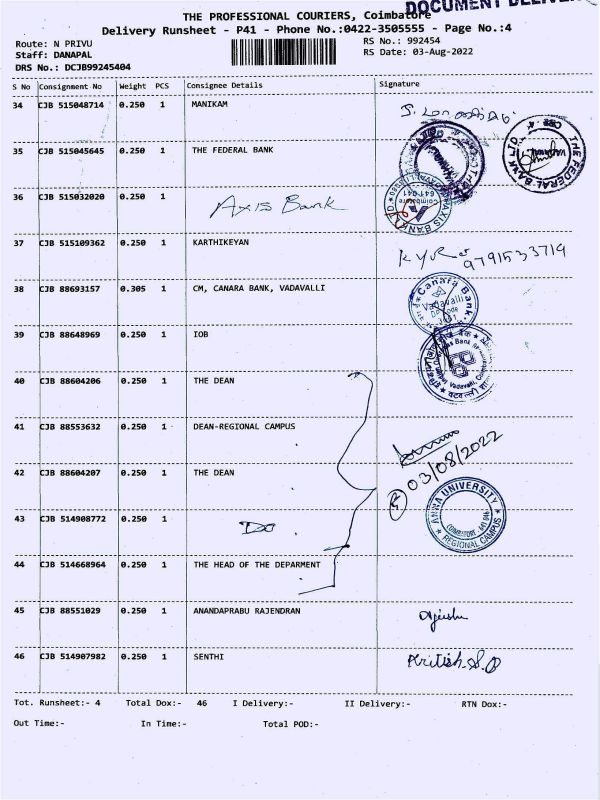 DOCUMENT DELIVER
THE PROFESSIONAL COURIERS, Coimbatore
Delivery Runsheet - P41 - Phone No.:0422-3505555 - Page No.:4
Route: N PRIVU
RS No.: 992454
Staff: DANAPAL
RS Date: 03-Aug-2022
DRS No.: DCJB99245404
S No Consignment No Weight PCS Consignee Details Signature
34 CJB 515048714 0.250 1 MANIKAM
35 CJB 515045645 0.250 1 THE FEDERAL BANK
THE FEDERAL BANK LTD
36 CJB 515032020 0.250 1 Axis Bank
AXIS BANK LTD
Coimbatore
641 041
37 CJB 515109362 0.250 1 KARTHIKEYAN
9791533719
38 CJB 88693157 0.305 1 CM, CANARA BANK, VADAVALLI
Canara Bank
Vadavalli
39 CJB 88648969 0.250 1 IOB
40 CJB 88604206 0.250 1 THE DEAN
41 CJB 88553632 0.250 1 DEAN-REGIONAL CAMPUS
03/08/2022
42 CJB 88604207 0.250 1 THE DEAN
5
43 CJB 514908772 0.250 1 Do
ANNA UNIVERSITY
REGIONAL CAMPUS
44 CJB 514668964 0.250 1 THE HEAD OF THE DEPARMENT
45 CJB 88551029 0.250 1 ANANDAPRABU RAJENDRAN
46 CJB 514907982 0.250 1 SENTHI Kritish.S.P
Tot. Runsheet:- 4 Total Dox:- 46 I Delivery:- II Delivery:- RTN Dox:-
Out Time:- In Time:- Total POD:-